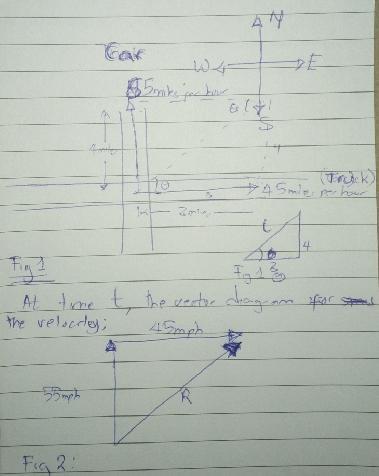 N
Car
W
E
55miles per hour
S
4mile
θ
45miles per hour
(Truck)
3miles
4
Fig 1
At time t, the vector diagram for
the velocity;
45mph
55mph
R
Fig 2: